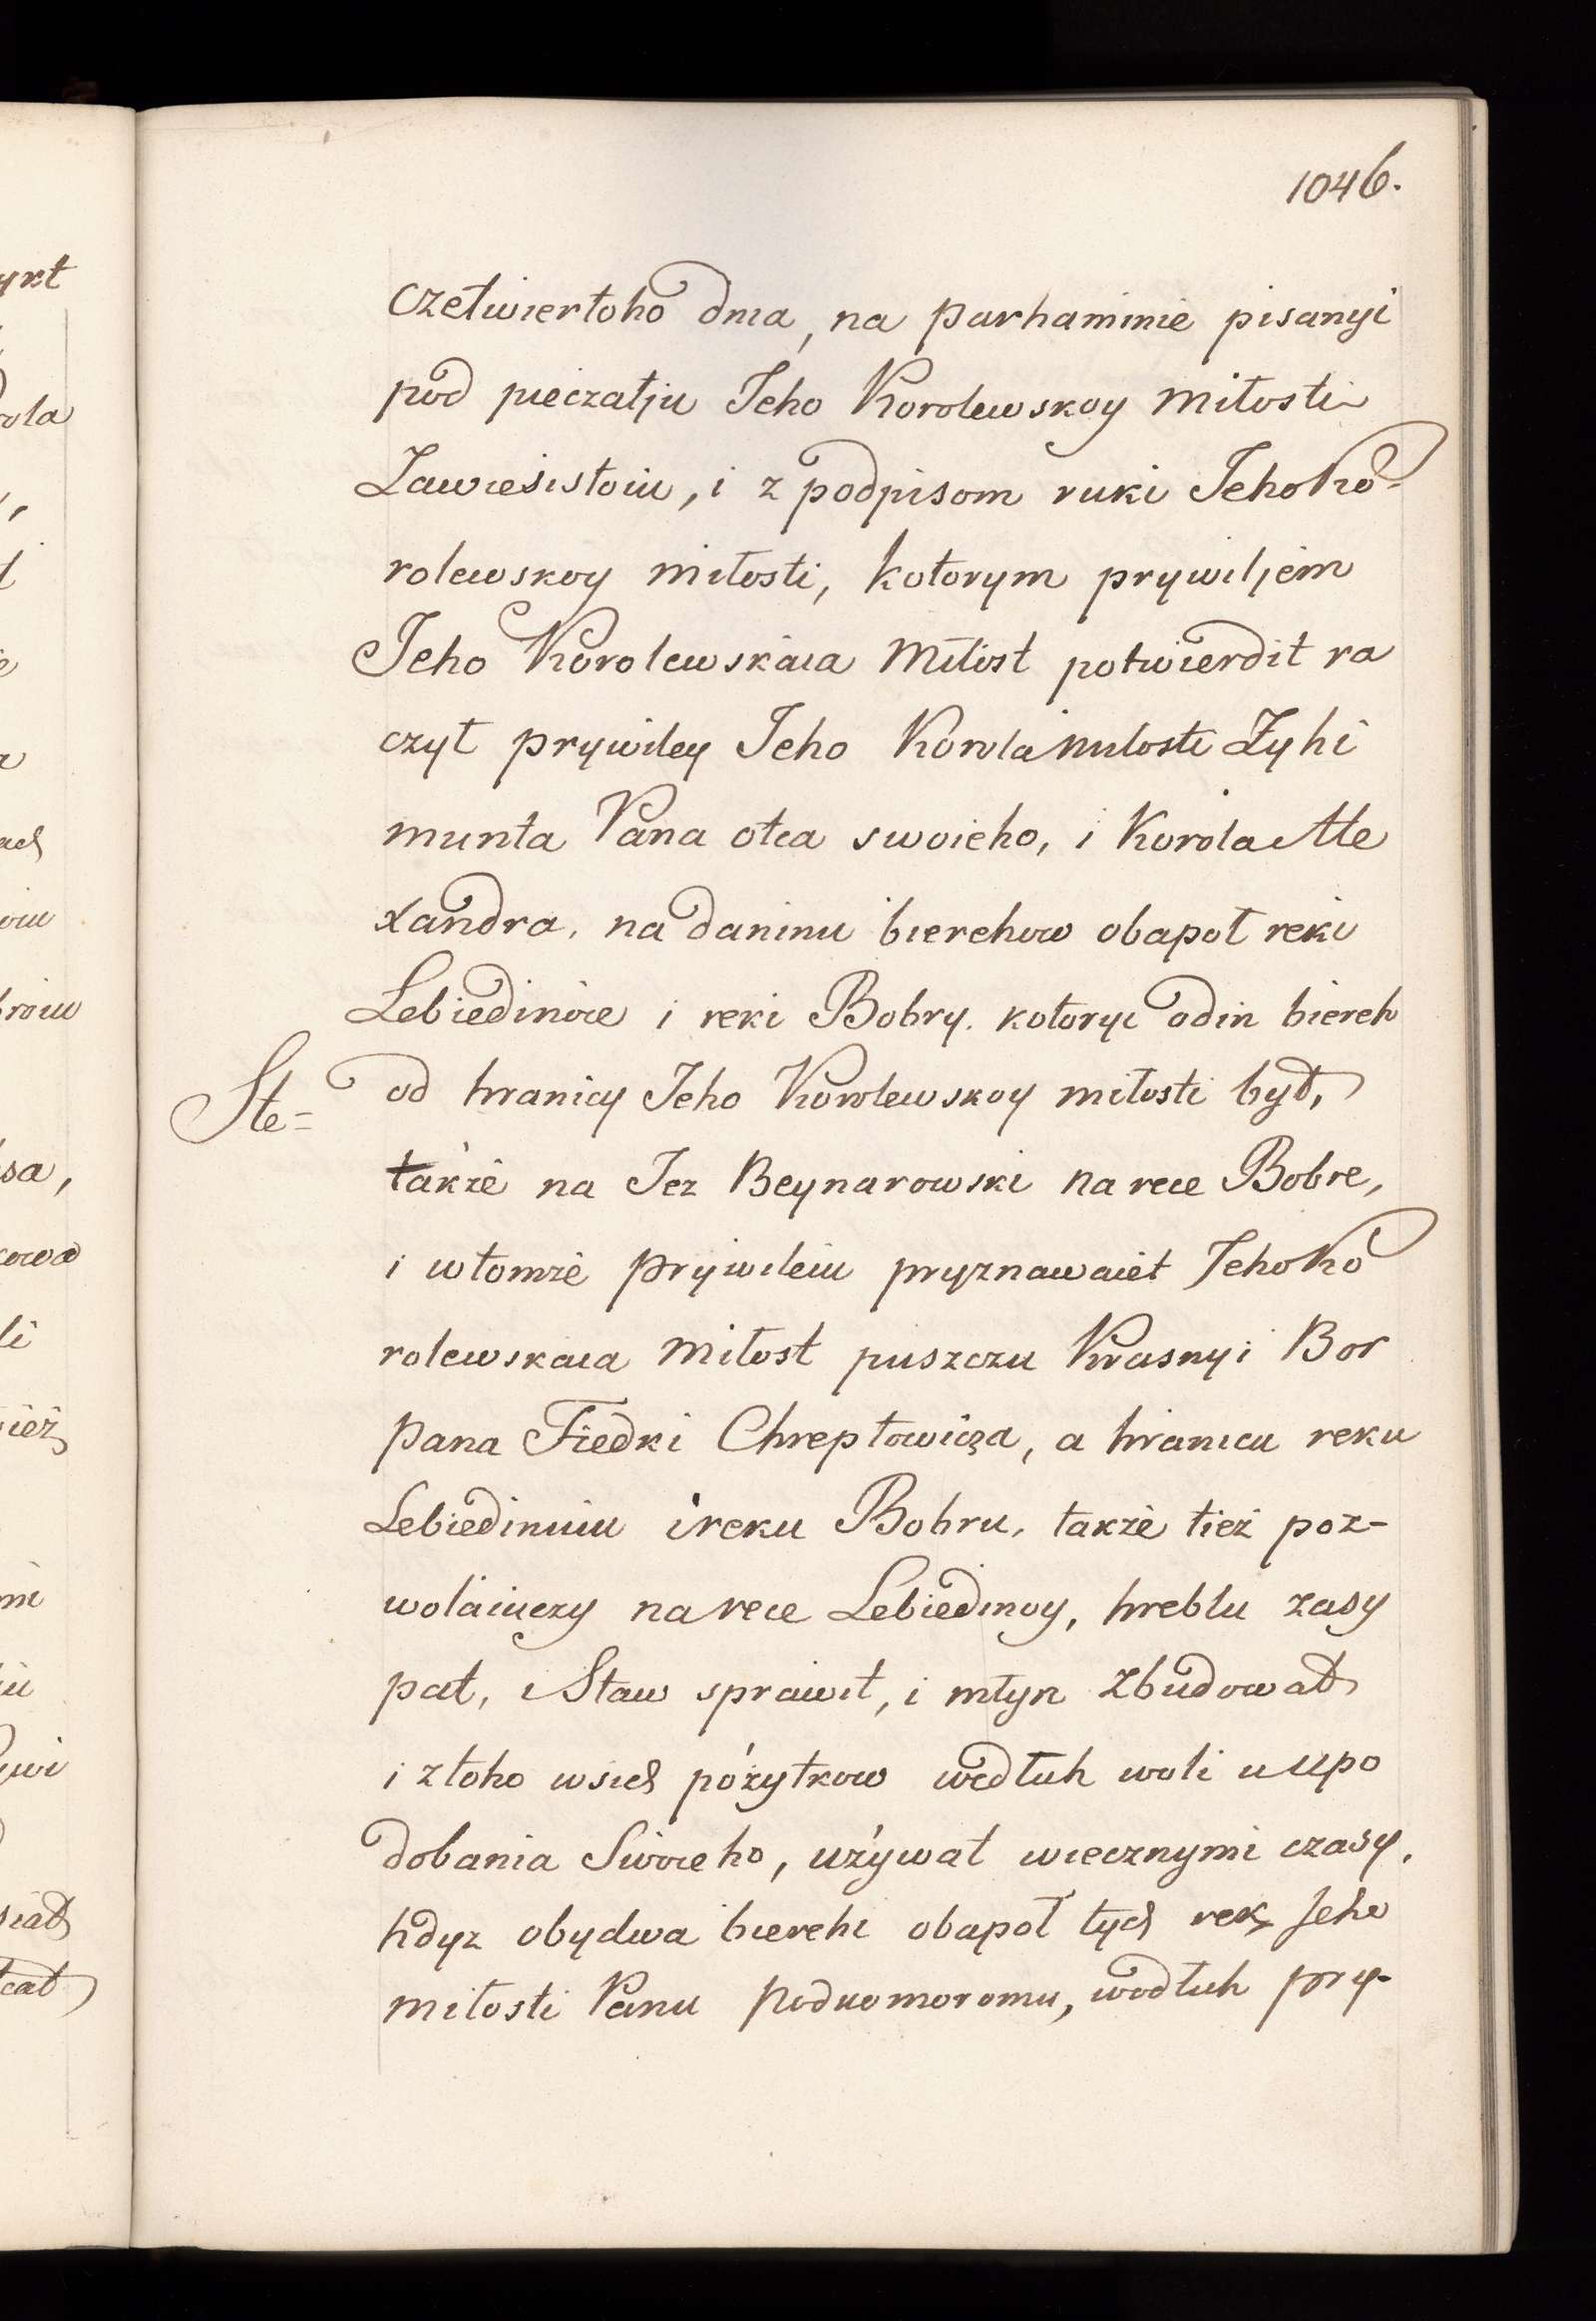 1046.
czetwiertoho dnia, na parhaminie pisanyi
pod pieczatju Jeho Korolewskoy miłosti
Zawiesistoiu, i z podpisom ruki Jeho Ko-
rolewskoy miłosti, kotorym prywiljem
Jeho Korolewskaia Miłost potwierdit ra
czył prywiley Jeho Korola miłosti Zyhi
munta Pana otca swoieho, i Korola Ale
xandra, na daninu bierehow obapoł reki
Lebiedinoie i reki Bobry. kotoryi odin biereh
od hranicy Jeho Korolewskoy miłosti był,
Ste=
także na Jez Beynarowski na rece Bobre,
i wtomże prywileiu pryznawaiet Jeho Ko
rolewskaia Miłost puszczu Krasnyi Bor
Pana Fiedki Chreptowicza, a hranicu reku
Lebiedinuiu i reku Bobru, także tież poz-
wolaiuczy na rece Lebiedinoy, hreblu zasy
pat, i Staw sprawit, i młyn zbudowat
i ztoho wsich pożytkow wedłuh woli u upo
dobania Swoieho, używat wiecznymi czasy,
hdyz obydwa bierehi obapoł tych rek Jeho
miłosti Panu Podkomoromu, wodłuh pry-